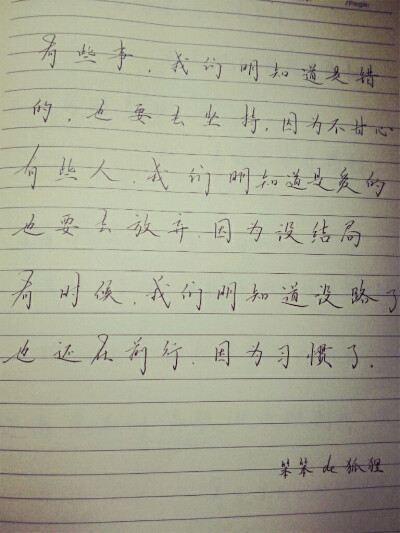 有些事，我们明知道是错
的，也要去坚持，因为不甘心
有些人，我们明知道是爱的
也要去放弃，因为没结局
有时候，我们明知道没路了
也还在前行，因为习惯了.
笨笨de狐狸